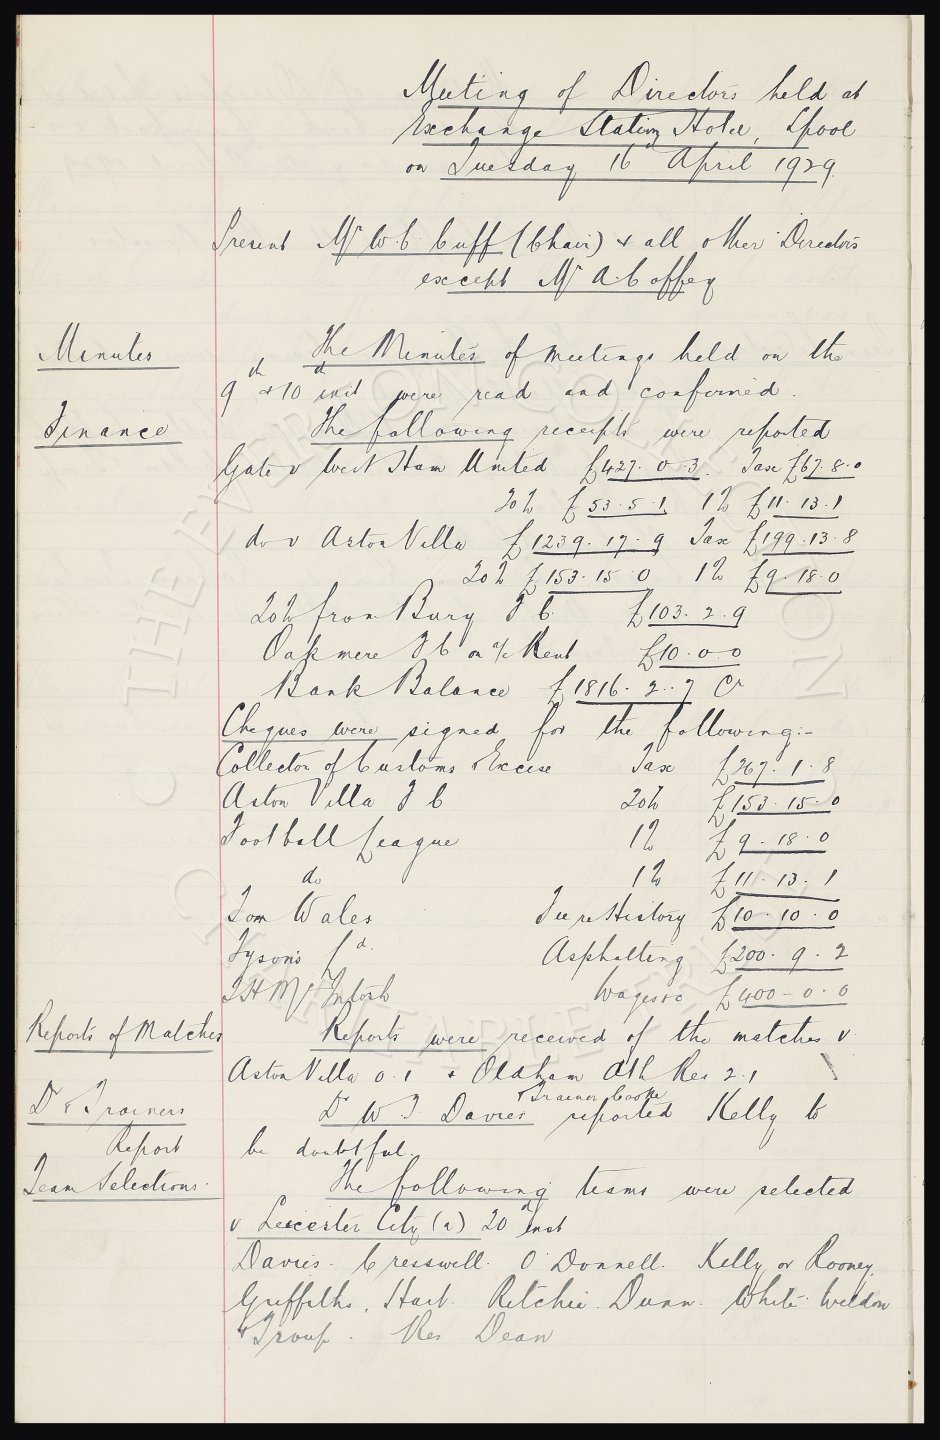 Meeting of Directors held at
Exchange Station Hotel, Lpool
on Tuesday 16 April 1929
Present Mr W.C. Cuff (Chair) & all other Directors
except Mr A. Coffey
Minutes
The Minutes of meetings held on the
9th & 10th inst were read and confirmed.
Finance
The following receipts were reported
Gate v West Ham United £427. 0. 3. Tax £67. 8. 0
20% £53. 5. 1. 1% £11. 13. 1
do v Aston Villa £1239. 17. 9 Tax £199. 13. 8
20% £153. 15. 0 1% £9. 18. 0
20% from Bury F C. £103. 2. 9
Oakmere F C on a/c Rent £10. 0. 0
Bank Balance £1816. 2. 7 Cr
Cheques were signed for the following:-
Collector of Customs & Excise Tax £267. 1. 8
Aston Villa F C 20% £153. 15. 0
Football League 1% £9. 18. 0
do 1% £11. 13. 1
Tom Wales Fee re History £10. 10. 0
Tysons Ld. Asphalting £200. 9. 2
T H McIntosh Wages &c £400 - 0. 0
Reports of Matches
Reports were received of the matches v
Aston Villa 0.1 & Oldham Ath Res 2.1
Dr & Trainers
Report
& Trainer Cooke
Dr W J Davies reported Kelly to
be doubtful.
Team Selections.
The following teams were selected
v Leicester City (a) 20th inst
Davies. Cresswell. O'Donnell. Kelly or Rooney.
Griffiths. Hart. Ritchie. Dunn. White. Weldon
& Troup. Res Dean